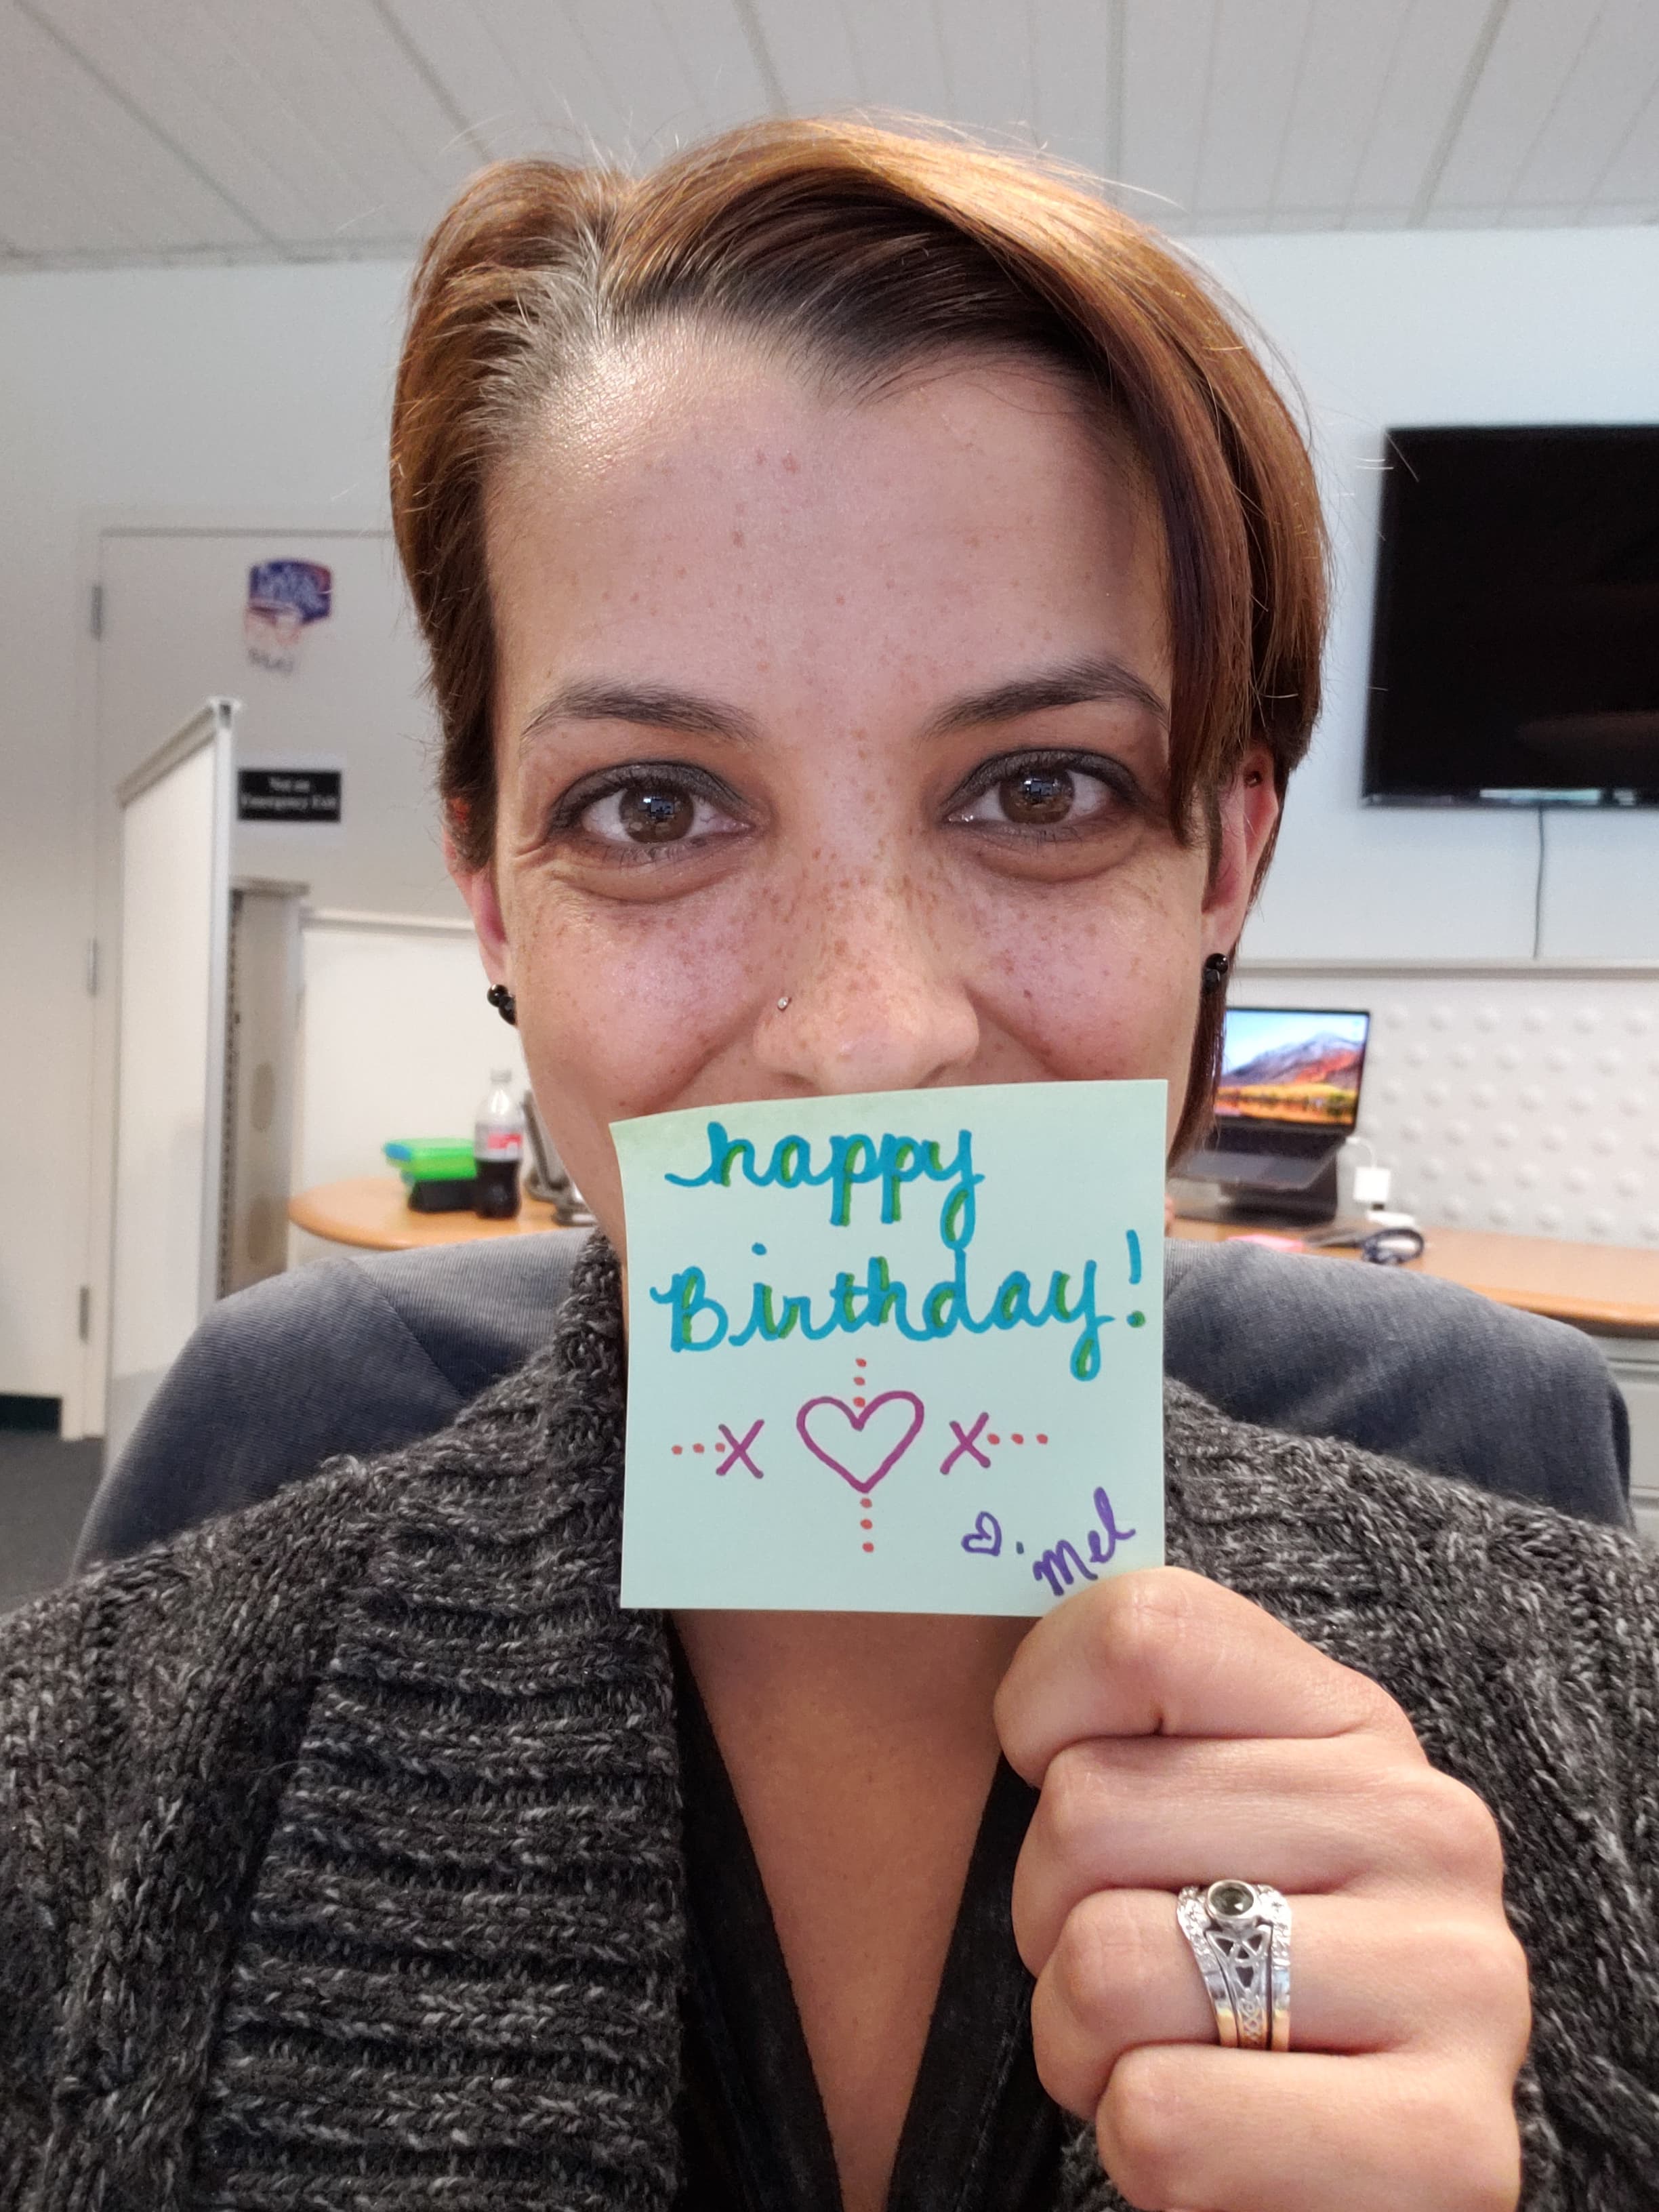 Not an
Emergency Exit
happy
Birthday!
x ♡ x
♡. Mel